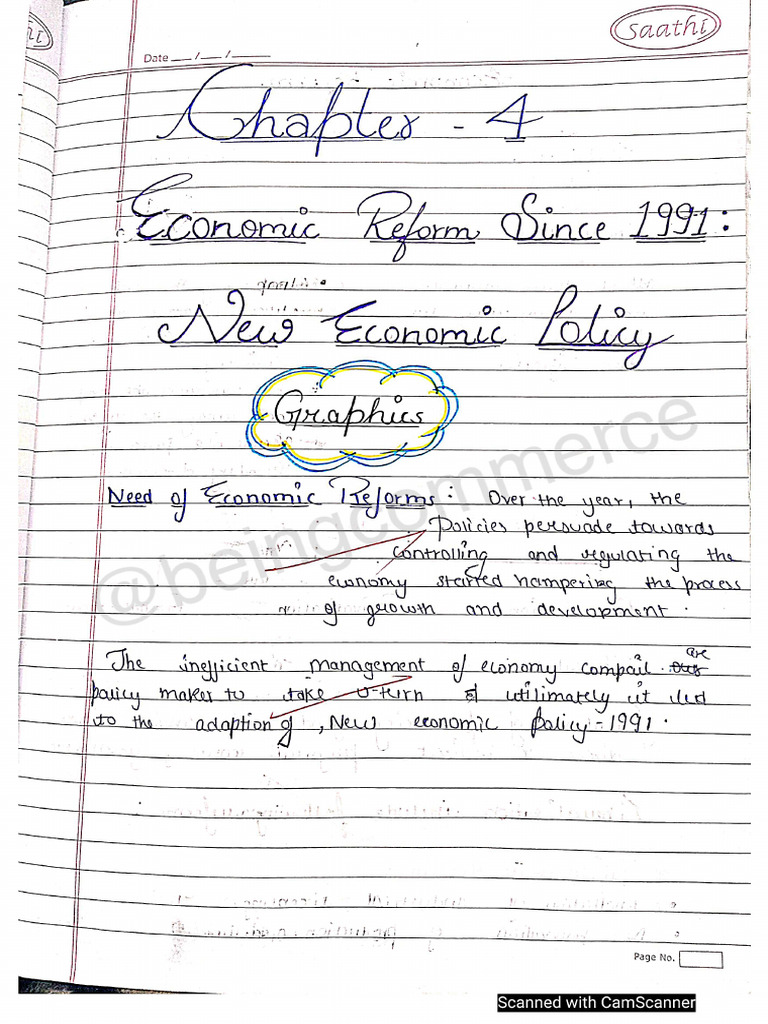 Saathi
Date __/__/____
Chapter - 4
Economic Reform Since 1991:
New Economic Policy
Graphics
Need of Economic Reforms: Over the year, the
Policies persuade towards
controlling and regulating the
economy started hampering the process
of growth and development.
are
The inefficient management of economy compail
policy maker to take U-turn & utilimately it led
to the adaption of, New economic Policy-1991.
@beingcommerce
Page No.
Scanned with CamScanner